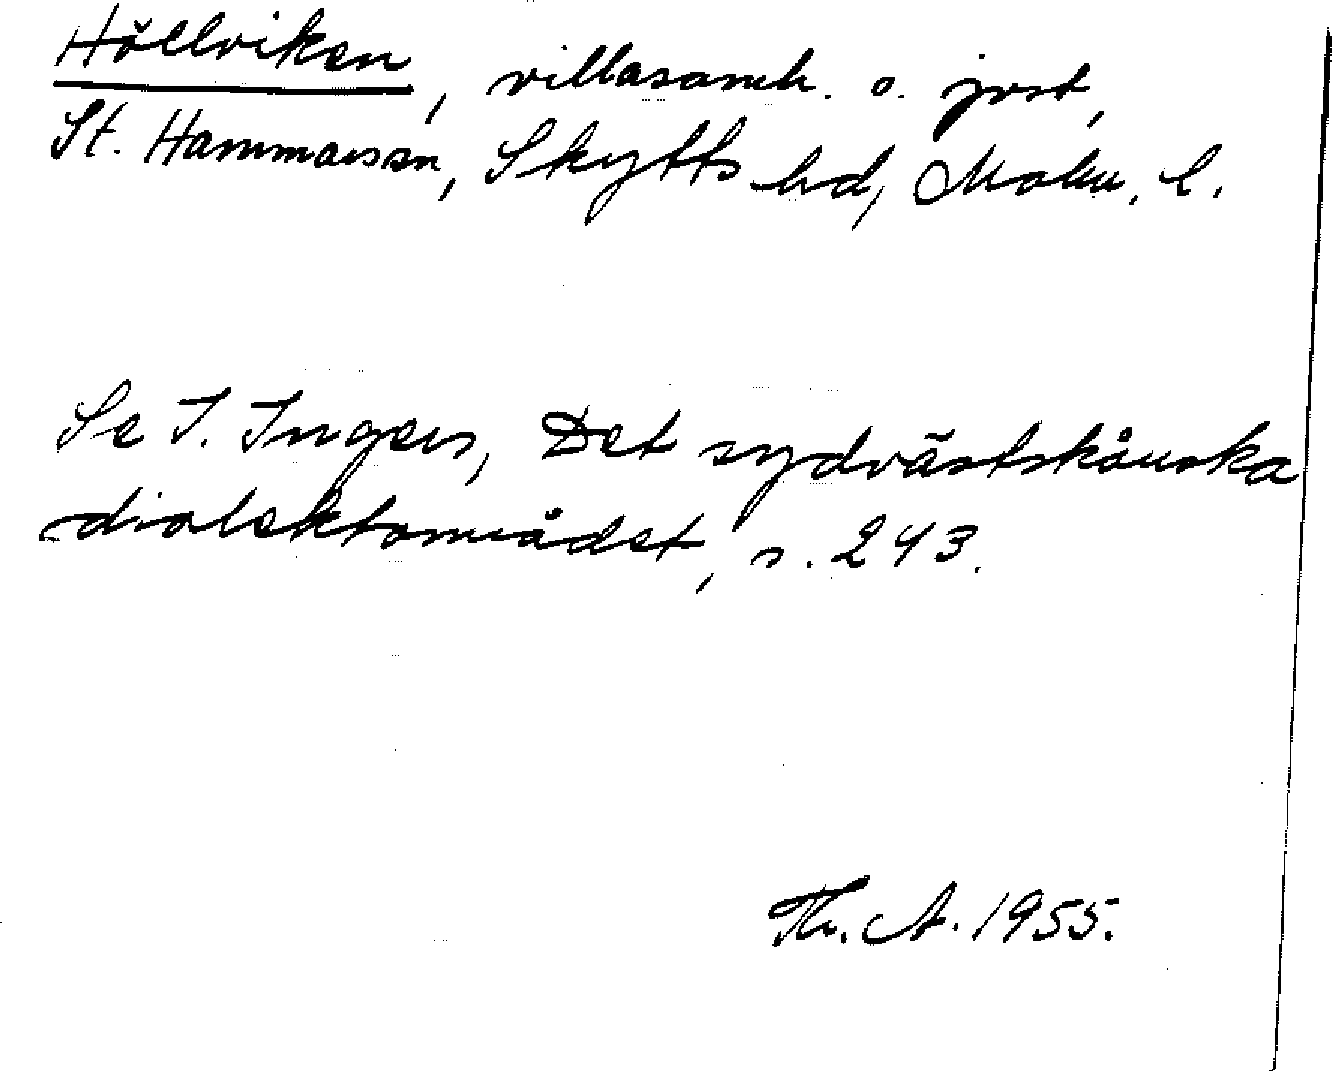 Höllviken, villasamh. o. jvst,
St. Hammarsn, Skytts hd, Malm. l.
Se I. Ingers, Det sydvästskånska
dialektområdet, s. 243.
Th. A. 1955.